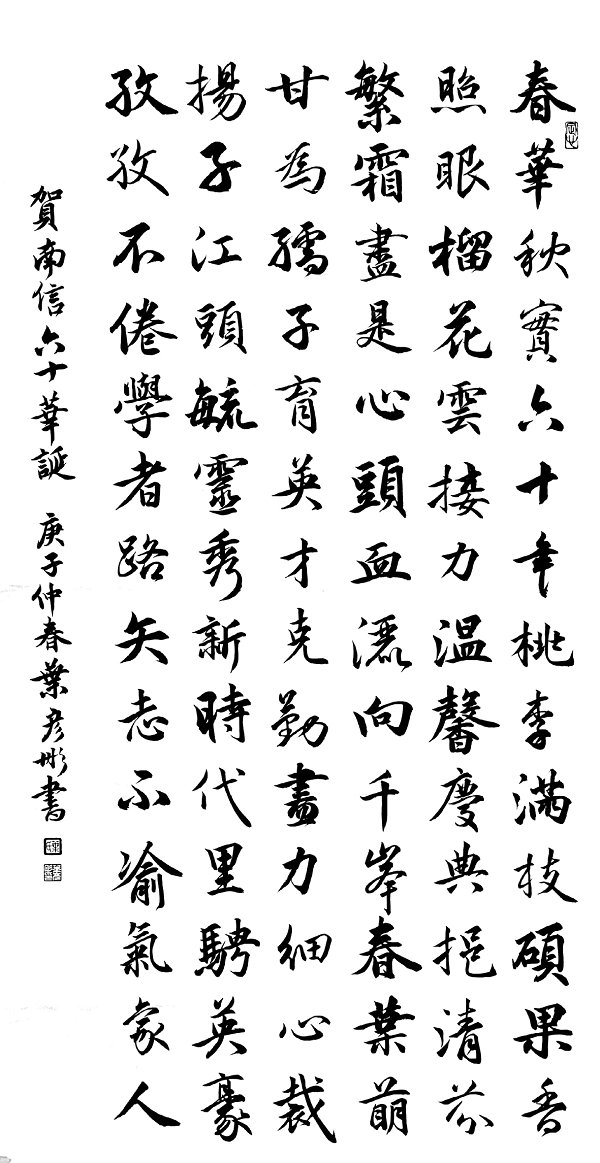 春華秋實六十年桃李滿枝碩果香
照眼榴花雲接力温馨慶典挹清芬
繁霜盡是心頭血灑向千峯春葉萌
甘為孺子育英才克勤盡力細心裁
揚子江頭毓靈秀新時代里騁英豪
孜孜不倦學者路矢志不渝氣象人
賀南信六十華誕 庚子仲春葉彥彬書